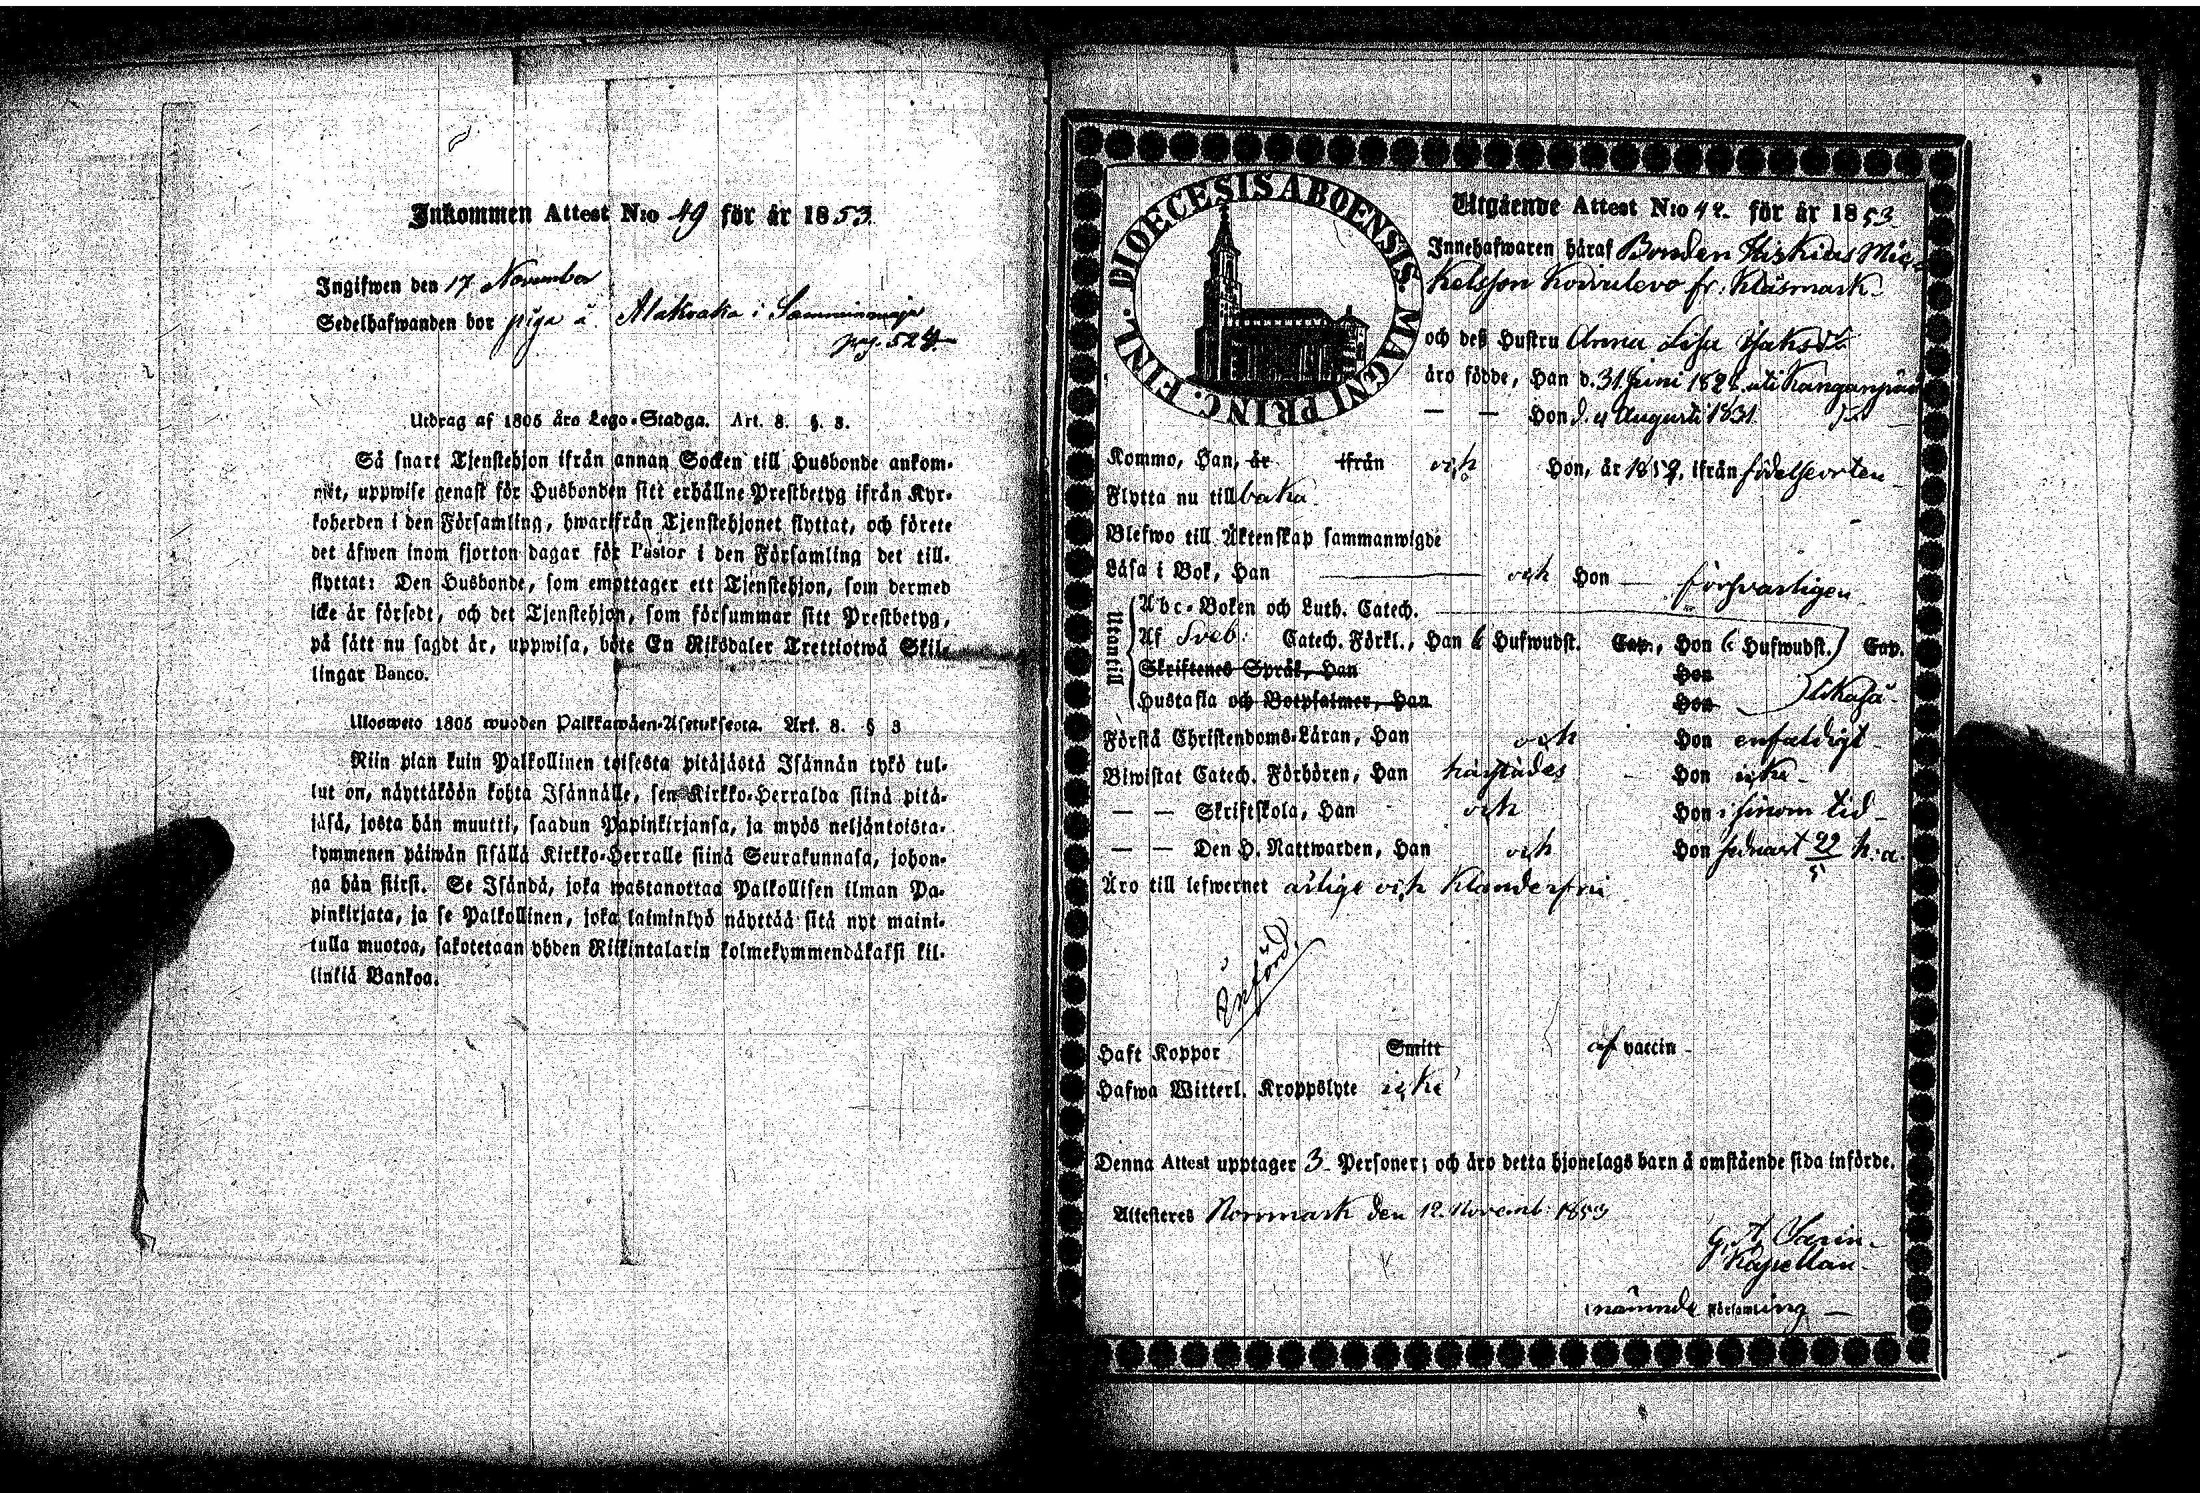 Inkommen Attest N:o 49 för år 1853
Ingifwen den 17 November
Sedelhafwanden bor piga å Alakraka i Samminmaja
pag. 524.
Utdrag af 1805 års Lego-Stadga. Art. 8. §. 3.
Så snart Tjenstehjon ifrån annan Socken till Husbonde ankom-
mit, uppwise genast för Husbonden sitt erhållne Prestbetyg ifrån Kyr-
koherden i den Församling, hwarifrån Tjenstehjonet flyttat, och förete
det äfwen inom fjorton dagar för Pastor i den Församling det till-
flyttat: Den Husbonde, som emottager ett Tjenstehjon, som dermed
icke är försedt, och det Tjenstehjon, som försummar sitt Prestbetyg,
på sätt nu sagdt är, uppwisa, böte En Riksdaler Trettiotwå Skil-
lingar Banco.
Ulosweto 1805 wuoden Palkkawäen-Asetuksesta. Art. 8. § 3
Niin pian kuin Palkollinen toisesta pitäjästä Isännän tykö tul-
lut on, näyttäköön kohta Isännälle, sen Kirkko-Herralda siinä pitä-
jäsä, josta hän muutti, saadun Papinkirjansa, ja myös neljäntoista-
kymmenen päiwän sisällä Kirkko-Herralle siinä Seurakunnasa, johon-
ga hän siirsi. Se Isändä, joka wastanottaa Palkollisen ilman Pa-
pinkirjata, ja se Palkollinen, joka laiminlyö näyttää sitä nyt maini-
tulla muotoa, sakotetaan yhden Riikintalarin kolmekymmendäkaksi kil-
linkiä Bankoa.
DIOECESIS ABOENSIS. MAGNI PRINC. FINL.
Utgående Attest N:o 42. för år 1853
Innehafwaren häraf Bonden Hiskias Mic-
kelsson Koivulevo fr: Kläsmark
och deß Hustru Anna Lisa Isaksd:r
äro födde, Han d. 31 Juni 1828 uti Kanganpää
— — Hon d. 4 Augusti 1831 d:o
Kommo, Han, är ifrån och Hon, år 1852, ifrån födelseorten
Flytta nu till baka
Blefwo till Äktenskap sammanwigde
Läsa i Bok, Han och Hon — försvarligen
Utantill
Abc-Boken och Luth. Catech.
Af Sveb: Catech. Förkl., Han 6 Hufwudst. Cap., Hon 6 Hufwudst. Cap.
Skriftenes Språk, Han Hon
Hustafla och Botpsalmer, Han Hon likaså
Förstå Christendoms-Läran, Han och Hon enfaldigt
Biwistat Catech. Förhören, Han härstädes Hon icke
— — Skriftskola, Han och Hon i sinom tid
— — Den H. Nattwarden, Han och Hon sednast 22/5 h: a.
Äro till lefwernet ärlige och klanderfrie
Införd
Haft Koppor Smitt af vaccin
Hafwa Witterl. Kroppslyte icke
Denna Attest upptager 3 Personer; och äro detta hjonelags barn å omstående sida införde.
Attesteres Norrmark den 12. Novemb: 1853
Kapellan
i nämnde Församling